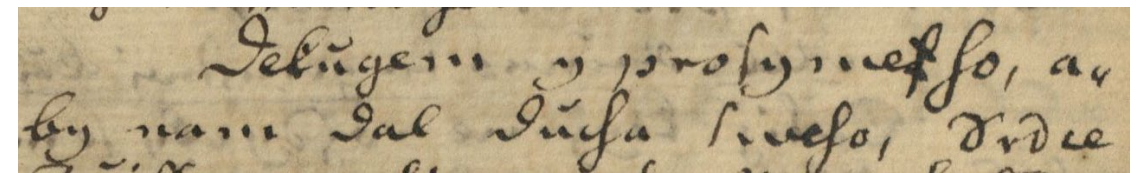 Děkugem y prosymeţ ho, a„
by nam dal ducha sweho, Srdce